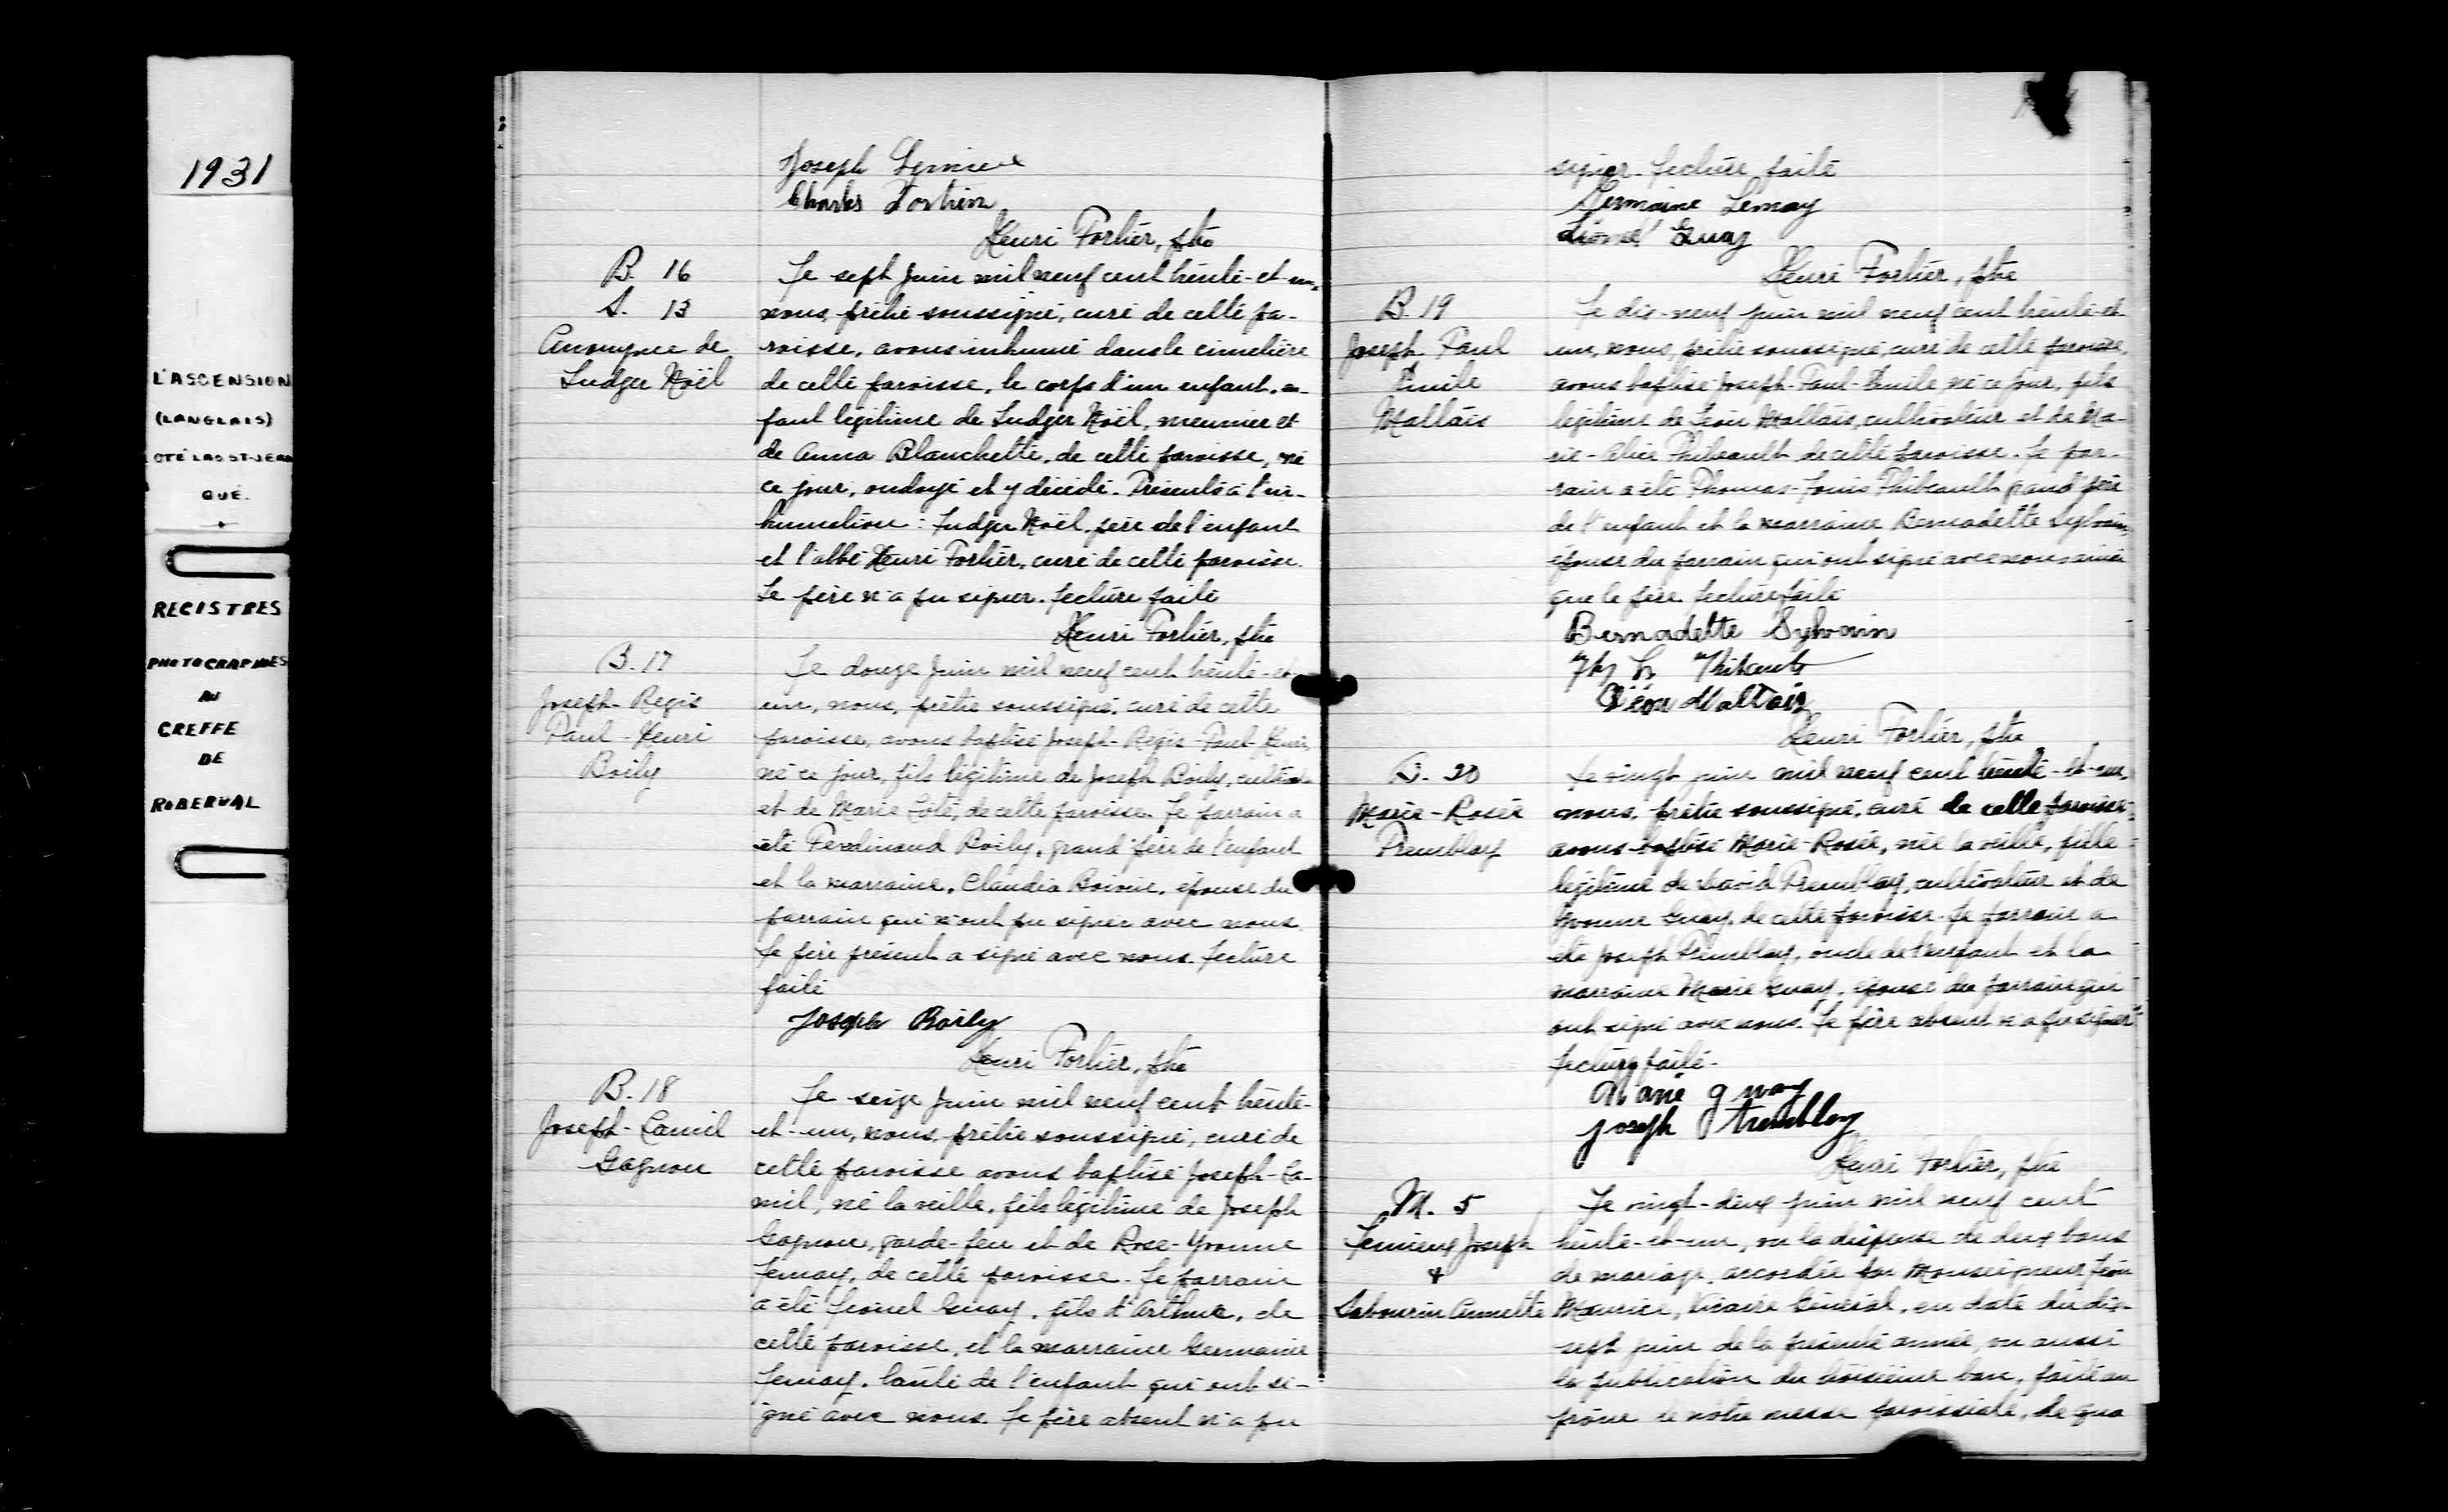 1931
L'ASCENSION
(LANGLAIS)
CTÉ LAC ST-JEAN
QUÉ.
REGISTRES
PHOTOGRAPHIÉS
AU
GREFFE
DE
ROBERVAL
Joseph Lemieux
Charles Fortin
Henri Fortier, ptre
B. 16
S. 13
Anonyme de
Ludger Noël
Le sept juin mil neuf cent trente-et-un,
nous, prêtre soussigné, curé de cette pa-
roisse, avons inhumé dans le cimetière
de cette paroisse, le corps d'un enfant, en-
fant légitime de Ludger Noël, meunier et
de Anna Blanchette, de cette paroisse, né
ce jour, ondoyé et y décédé. Présents à l'in-
humation : Ludger Noël, père de l'enfant
et l'abbé Henri Fortier, curé de cette paroisse.
Le père n'a pu signer. Lecture faite
Henri Fortier, ptre
B. 17
Joseph-Regis
Paul-Henri
Boily
Le douze juin mil neuf cent trente-et-
un, nous, prêtre soussigné, curé de cette
paroisse, avons baptisé Joseph-Regis-Paul-Henri,
né ce jour, fils légitime de Joseph Boily, cultivate
et de Marie Coté, de cette paroisse. Le parrain a
été Ferdinand Boily, grand'père de l'enfant
et la marraine, Claudia Boivin, épouse du
parrain qui n'ont pu signer avec nous.
Le père présent a signé avec nous. Lecture
faite
Joseph Boily
Henri Fortier, ptre
B. 18
Joseph-Camil
Gagnon
Le seize juin mil neuf cent trente-
et-un, nous, prêtre soussigné, curé de
cette paroisse avons baptisé Joseph-Ca-
mil, né la veille, fils légitime de Joseph
Gagnon, garde-feu et de Rose-Yvonne
Lemay, de cette paroisse. Le parrain
a été Lionel Guay, fils d'Arthur, de
cette paroisse, et la marraine Germaine
Lemay, tante de l'enfant qui ont si-
gné avec nous. Le père absent n'a pu
signer. Lecture faite
Germaine Lemay
Lionel Guay
Henri Fortier, ptre
B. 19
Joseph Paul
Emile
Maltais
Le dix-neuf juin mil neuf cent trente-et
un, nous, prêtre soussigné, curé de cette paroisse,
avons baptisé Joseph-Paul-Emile, né ce jour, fils
légitime de Léon Maltais, cultivateur et de Ma-
rie-Alice Thibeault de cette paroisse. Le par-
rain a été Thomas-Louis Thibeault grand'père
de l'enfant et la marraine Bernadette Sylvain,
épouse du parrain qui ont signé avec nous ainsi
que le père. Lecture faite
Bernadette Sylvain
Ths Ls Thibault
Léon Maltais
Henri Fortier, ptre
B. 20
Marie-Rosée
Tremblay
Le vingt juin mil neuf cent trente-et-un,
nous, prêtre soussigné, curé de cette paroisse,
avons baptisé Marie-Rosée, née la veille, fille
légitime de David Tremblay, cultivateur et de
Yvonne Guay, de cette paroisse. Le parrain a
été Joseph Tremblay, oncle de l'enfant et la
marraine Marie Guay, épouse du parrain qui
ont signé avec nous. Le père absent n'a pu signer
Lecture faite.
Marie Guay
Joseph Tremblay
Henri Fortier, ptre
M. 5
Lemieux Joseph
&
Sabourin Annette
Le vingt-deux juin mil neuf cent
trente-et-un, vu la dispense de deux bans
de mariage, accordée par Monseigneur Léon
Maurice, Vicaire Général, en date du dix-
sept juin de la présente année, vu aussi
la publication du troisième ban, faite au
prône de notre messe paroissiale, de qua